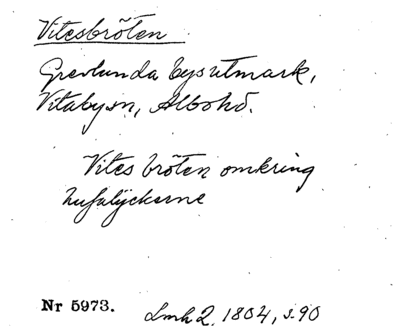 Vitesbröten
Grevlunda bys utmark,
Vitaby sn, Albo hd.
Vites bröten omkring
hufvlÿckerne
Nr 5973.
Lmh 2, 1804, s. 90